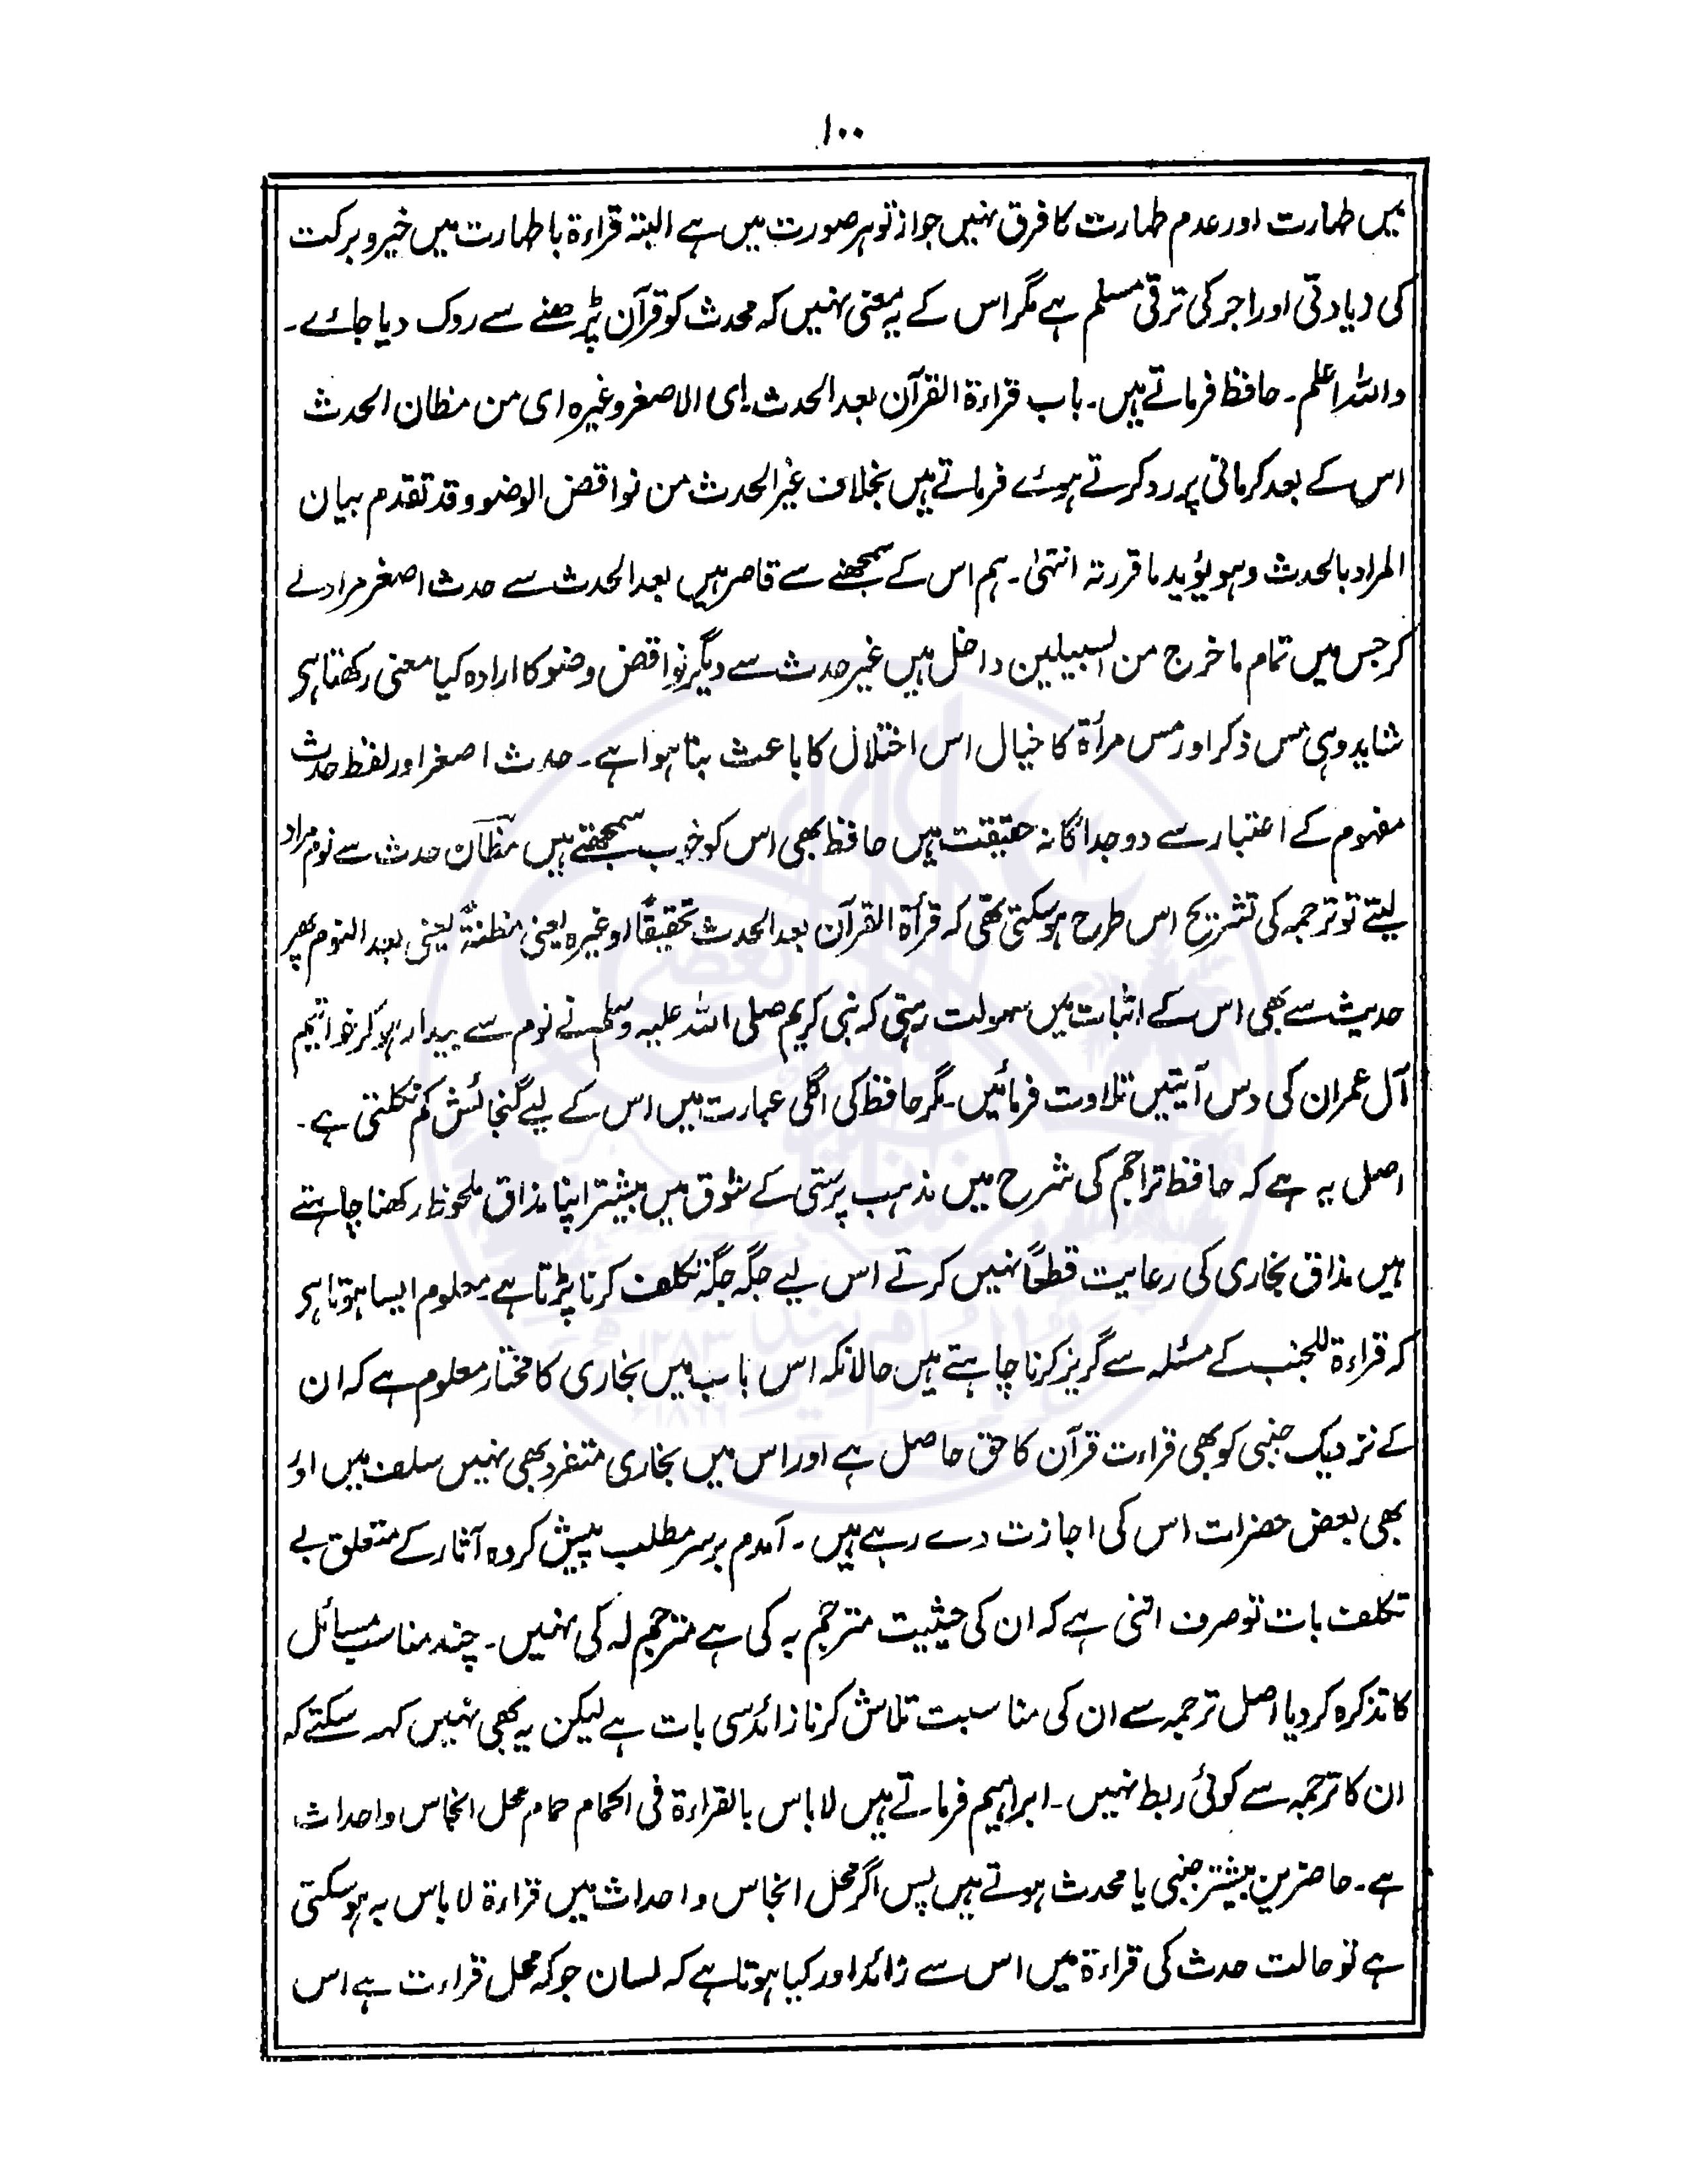 ۱۰۰
میں طہارت اور عدم طہارت کا فرق نہیں جواز تو ہر صورت میں ہے البتہ قراءۃ با طہارت میں خیر و برکت
کی زیادتی اور اجر کی ترقی مسلم ہے مگر اس کے یہ معنی نہیں کہ محدث کو قرآن پڑھنے سے روک دیا جائے۔
واللہ اعلم۔ حافظ فرماتے ہیں۔ باب قراءۃ القرآن بعد الحدث۔ ای الاصغر وغیرہ ای من مظان الحدث
اس کے بعد کرمانی پر رد کرتے ہوئے فرماتے ہیں بخلاف غیر الحدث من نواقض الوضو وقد تقدم بیان
المراد بالحدث وہو یؤید ما قررتہ انتہیٰ۔ ہم اس کے سمجھنے سے قاصر ہیں بعد الحدث سے حدث اصغر مراد لے
کر جس میں تمام ما خرج من السبیلین داخل ہیں غیر حدث سے دیگر نواقض وضو کا ارادہ کیا معنی رکھتا ہی
شاید وہی مس ذکر اور مس مرأۃ کا خیال اس اختلال کا باعث بنا ہوا ہے۔ حدث اصغر اور لفظ حدث
مفہوم کے اعتبار سے دو جداگانہ حقیقت ہیں حافظ بھی اس کو خوب سمجھتے ہیں مظان حدث سے نوم مراد
لیتے تو ترجمہ کی تشریح اس طرح ہو سکتی تھی کہ قرأۃ القرآن بعد الحدث تحقیقاً او غیرہ یعنی مظنۃً یعنی بعد النوم پھر
حدیث سے بھی اس کے اثبات میں سہولت رہتی کہ نبی کریم صلی اللہ علیہ وسلم نے نوم سے بیدار ہو کر خواتیم
آل عمران کی دس آیتیں تلاوت فرمائیں۔ مگر حافظ کی اگلی عبارت میں اس کے لیے گنجائش کم نکلتی ہے۔
اصل یہ ہے کہ حافظ تراجم کی شرح میں مذہب پرستی کے شوق میں بیشتر اپنا مذاق ملحوظ رکھنا چاہتے
ہیں مذاق بخاری کی رعایت قطعاً نہیں کرتے اس لیے جگہ جگہ تکلف کرنا پڑتا ہے معلوم ایسا ہوتا ہی
کہ قراءۃ للجنب کے مسئلہ سے گریز کرنا چاہتے ہیں حالانکہ اس باب میں بخاری کا مختار معلوم ہے کہ ان
کے نزدیک جنبی کو بھی قراءت قرآن کا حق حاصل ہے اور اس میں بخاری متفرد بھی نہیں سلف میں اور
بھی بعض حضرات اس کی اجازت دے رہے ہیں۔ آمدم برسر مطلب پیش کردہ آثار کے متعلق بے
تکلف بات تو صرف اتنی ہے کہ ان کی حیثیت مترجم بہ کی ہے مترجم لہ کی نہیں۔ چند مناسب مسائل
کا تذکرہ کر دیا اصل ترجمہ سے ان کی مناسبت تلاش کرنا زائد سی بات ہے لیکن یہ بھی نہیں کہہ سکتے کہ
ان کا ترجمہ سے کوئی ربط نہیں۔ ابراہیم فرماتے ہیں لا باس بالقراءۃ فی الحمام حمام محل انجاس واحداث
ہے۔ حاضرین بیشتر جنبی یا محدث ہوتے ہیں پس اگر محل انجاس واحداث میں قراءۃ لا باس بہ ہو سکتی
ہے تو حالت حدث کی قراءۃ میں اس سے زائد اور کیا ہوتا ہے کہ لسان جو کہ محل قراءت ہے اس